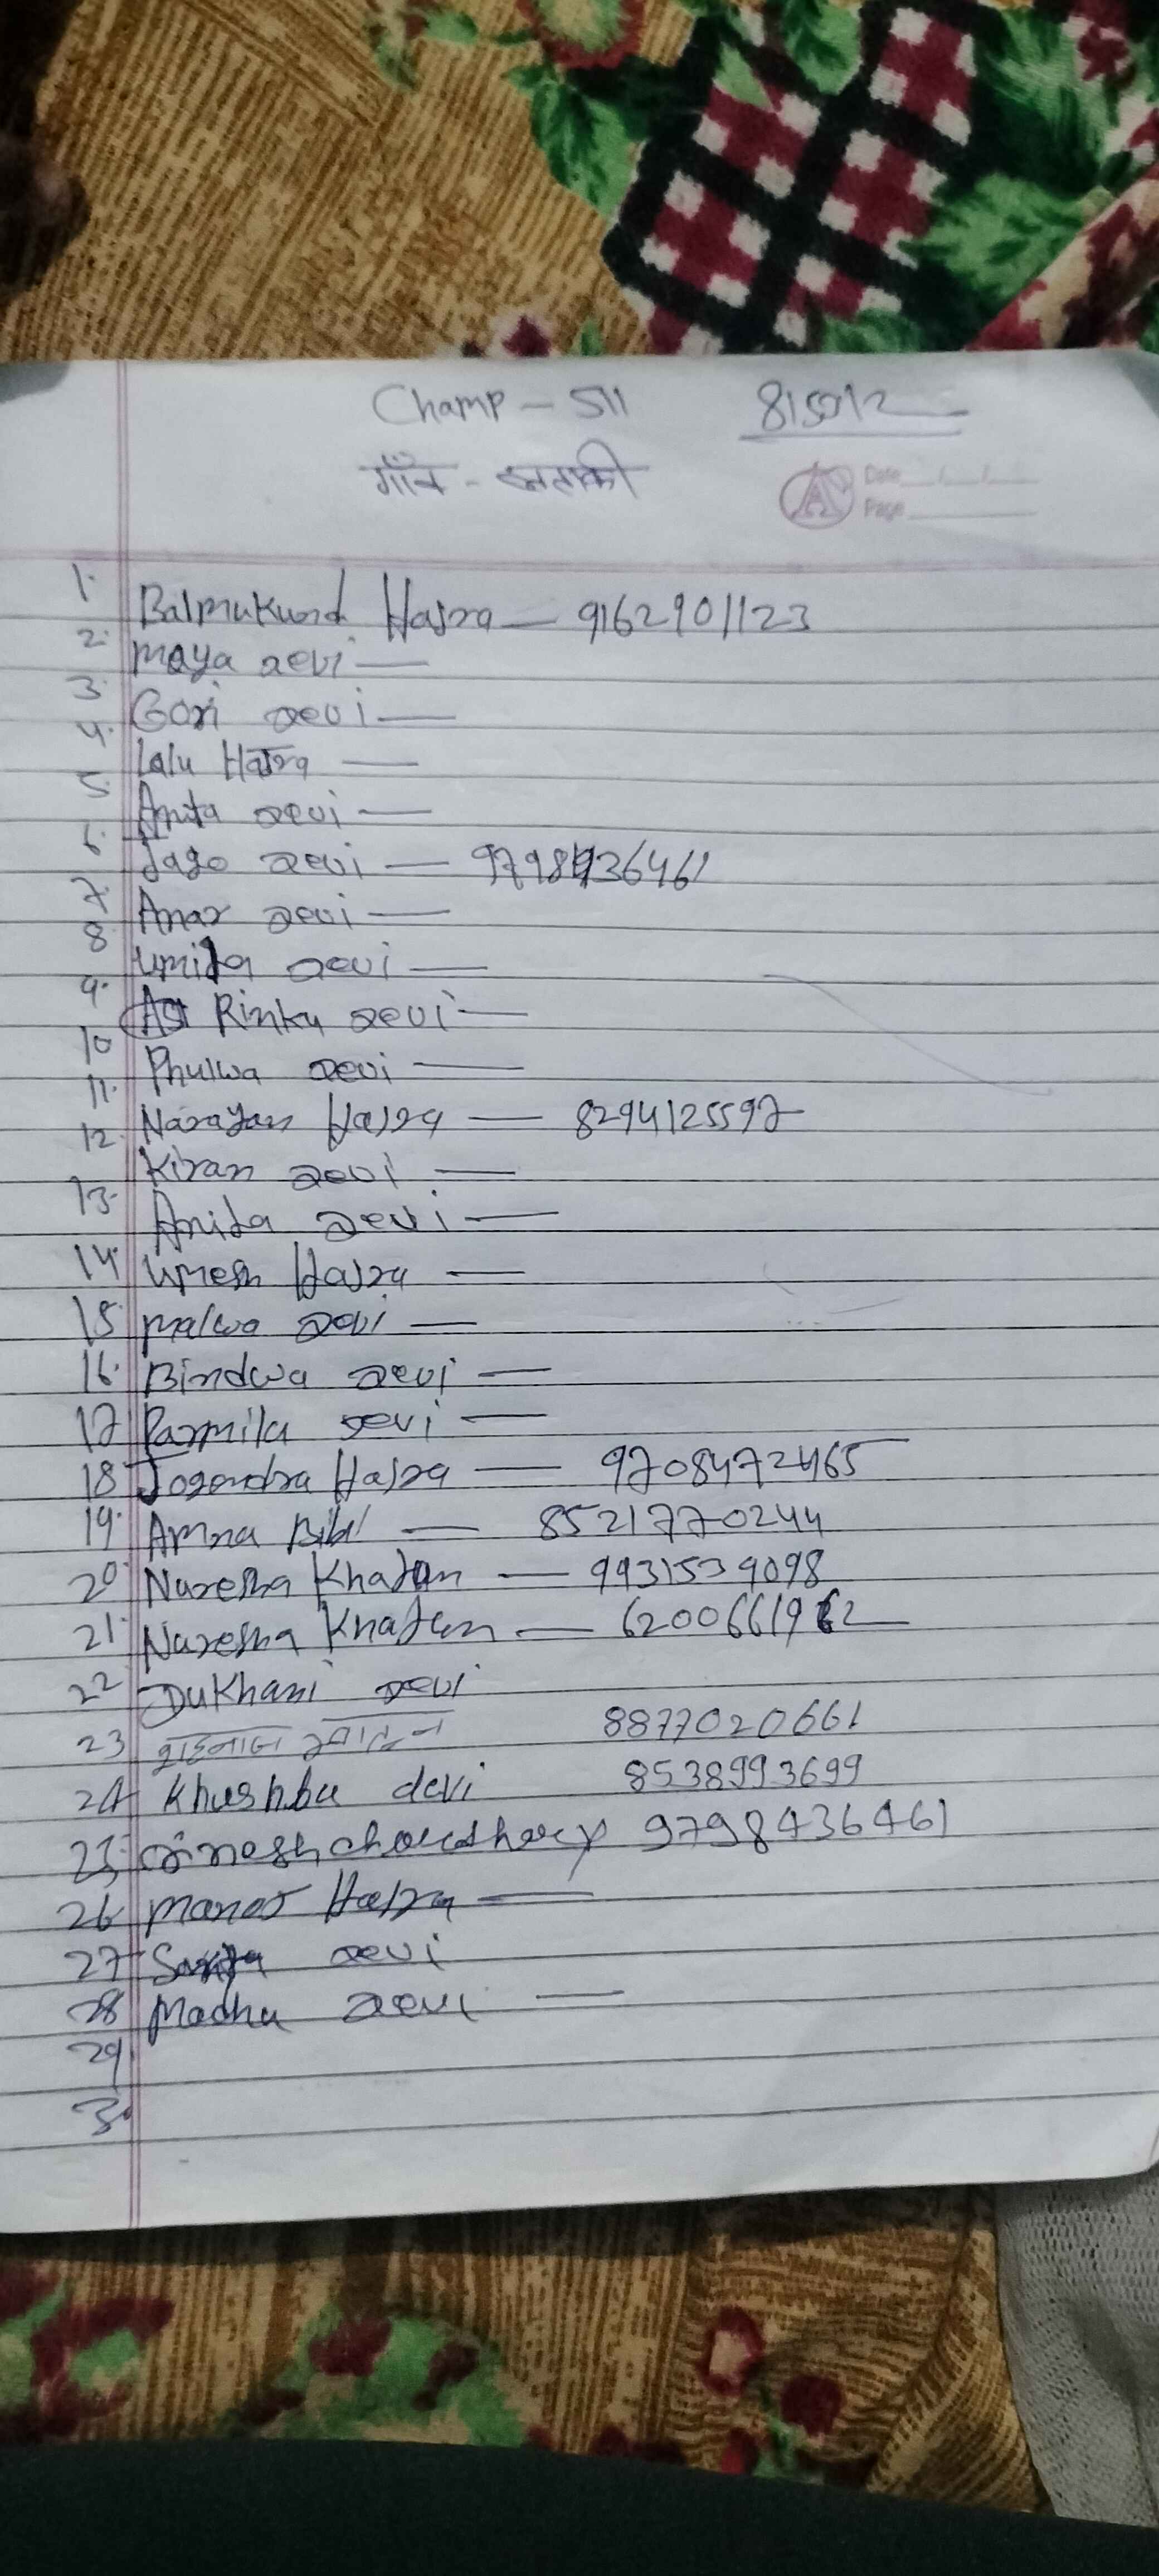 Champ - 511 815012
गाँव -
Date / /
Page
1. Balmukund Hajra — 9162901123
2. Maya Devi —
3. Gori Devi —
4. Lalu Hajra —
5. Anita Devi —
6. Jago Devi — 9798436461
7. Anar Devi —
8. Devi —
9. Rinku Devi —
10 Phulwa Devi —
11. Narayan Hajra — 8294125597
12. Kiran Devi —
13. Anita Devi —
14. Umesh Hajra —
15 Malwa Devi —
16. Bindwa Devi —
17 Parmila Devi —
18 Jogendra Hajra — 9708472465
19. Amna Bibi — 8521770244
20 Naresha Khatun — 9931539098
21. Naresha Khatun — 6200661962
22 Dukhani Devi
23 शहनाज खातुन 8877020661
24 Khushbu devi 8538993699
25 Dinesh choudhary 9798436461
26 Manoj Hajra —
27 Devi
28 Madhu Devi —
29.
30